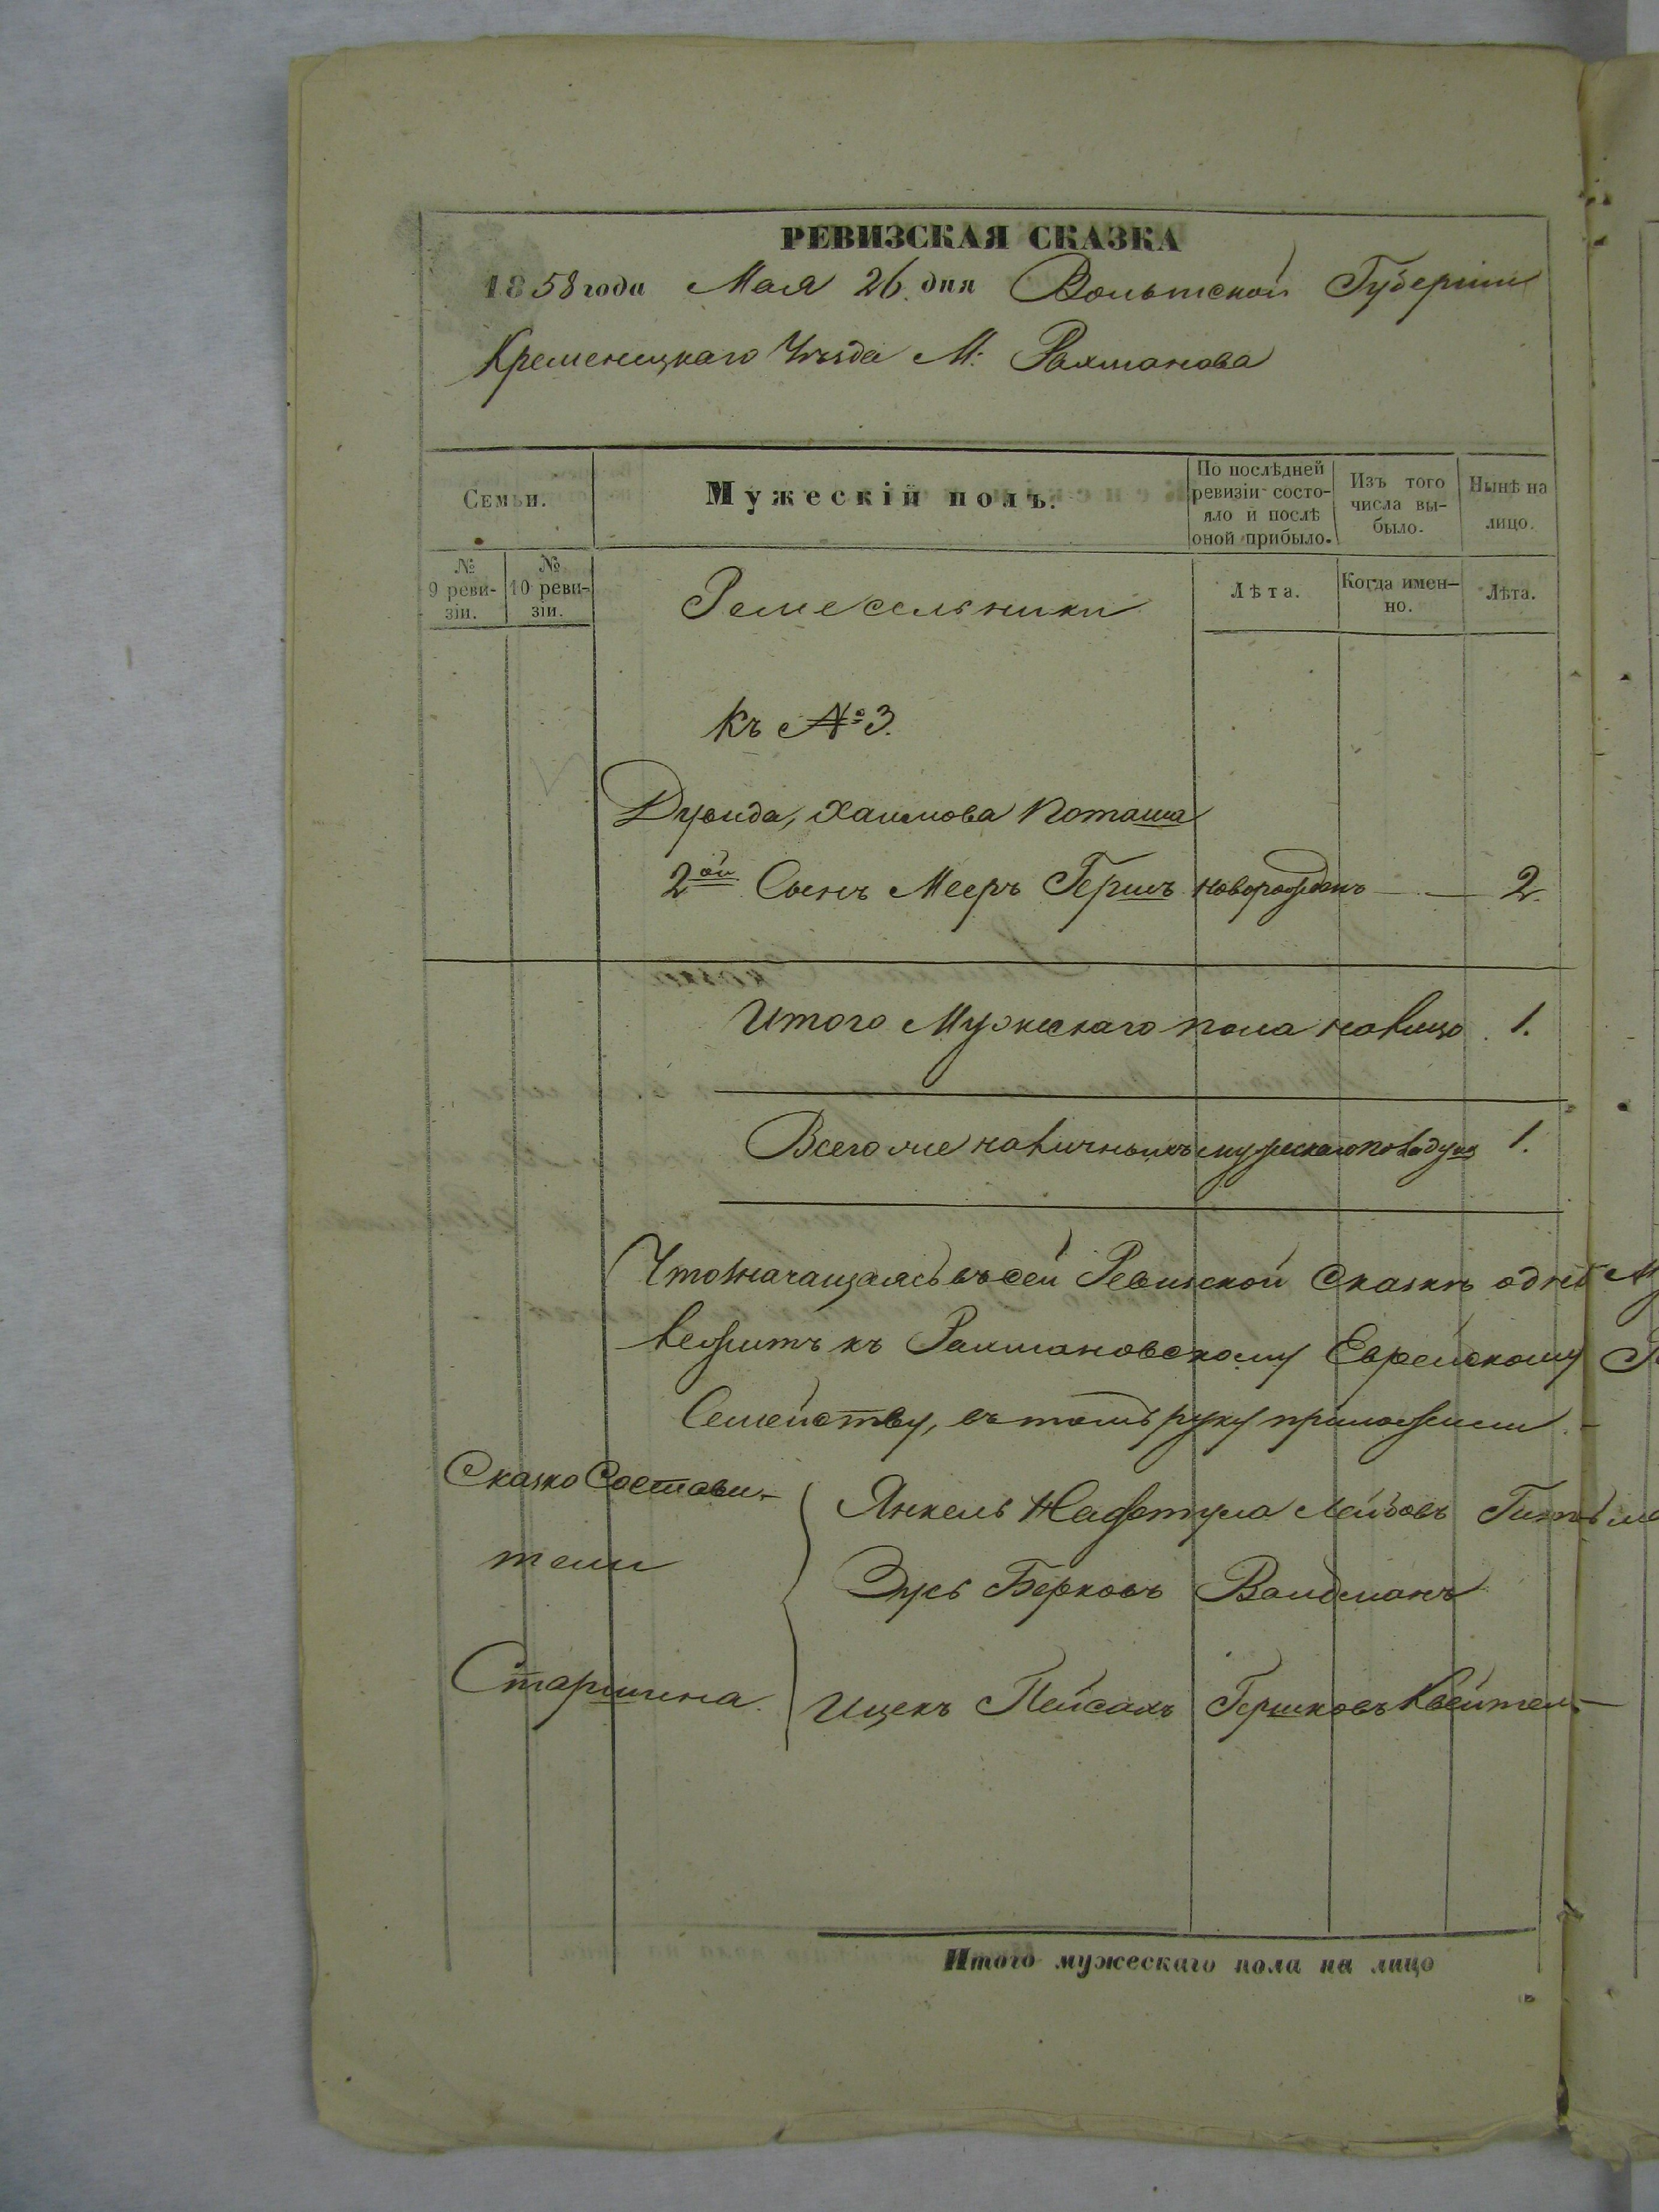 РЕВИЗСКАЯ СКАЗКА
1858 года Мая 26 дня Волынской Губернiи
Кременецкаго Уѣзда М: Рахманова
Семьи.
Мужескiй полъ.
По послѣдней ревизiи состо-
яло и послѣ
оной прибыло.
Изъ того
числа вы-
было.
Нынѣ на
лицо.
№
9 реви-
зiи.
№
10 реви-
зiи.
Ремесельники
Лѣта.
Когда имен-
но.
Лѣта.
Къ № 3.
Дувида, Хаимова Поташа
2ой Сынъ Мееръ Гершъ новорожденъ — — 2.
Итого Мужескаго пола налицо 1.
Всего же наличныхъ мужескаго пола душъ 1.
Что значащаяся въ сей Ревизской Сказкѣ одна
лежитъ къ Рахмановскому Еврейскому
Семейству, въ томъ руку приложили —
Сказкосостави-
тели
Янкель Нафтула Лейбовъ
Зусь Берковъ Валдманъ
Старшина.
Ицекъ Пейсахъ Гершковъ Квейтель —
Итого мужескаго пола на лицо